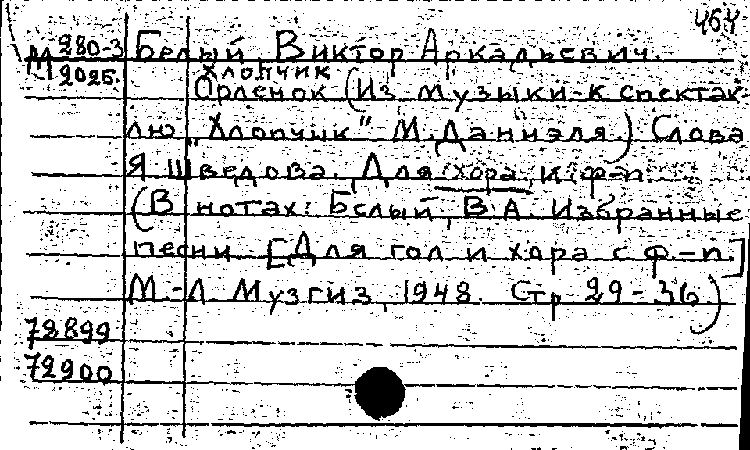 464
М 280-3 Белый, Виктор Аркадьевич.
Хлопчик
2025. Орленок (Из музыки к спектак-
лю „Хлопчик" М. Даниэля.) Слова
Я Шведова. Для хора и ф-п.
(В нотах: Белый, В.А. Избранные
песни [Для гол и хора с ф-п.]
М.-Л. Музгиз, 1948. Стр 29-36)
72899
72900